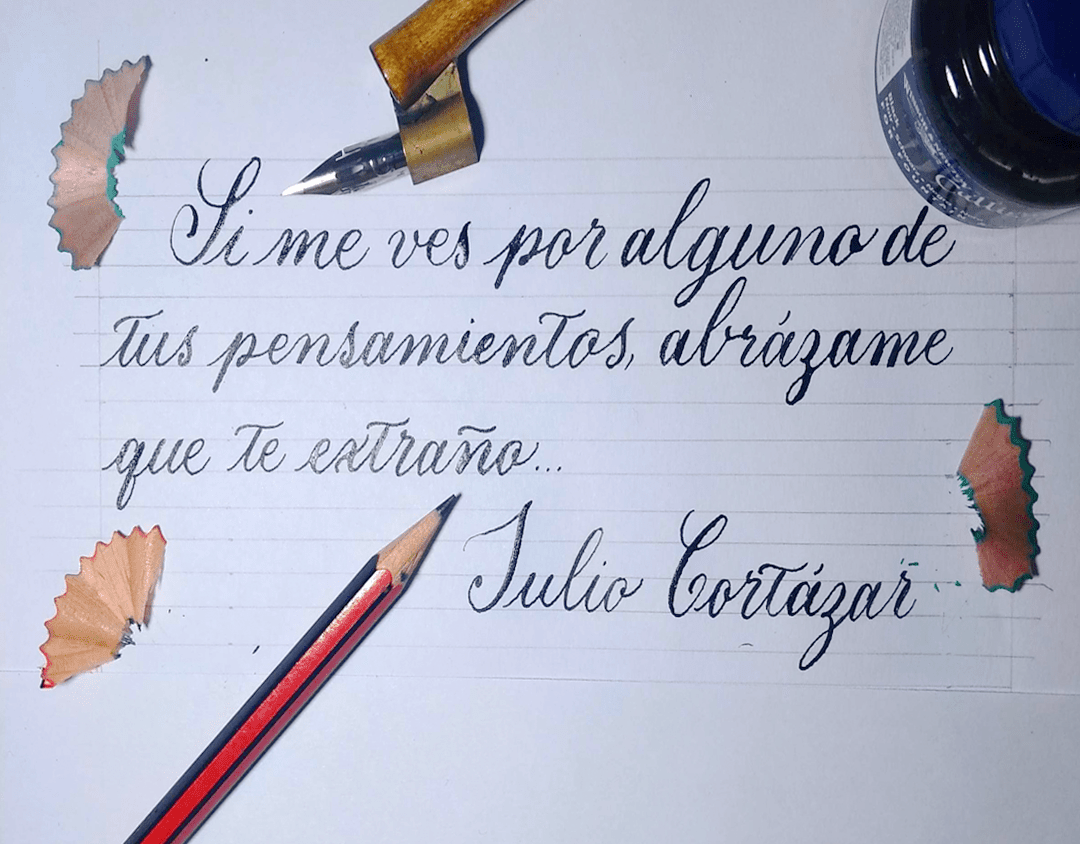 Si me ves por alguno de
tus pensamientos, abrázame
que te extraño...
Julio Cortázar